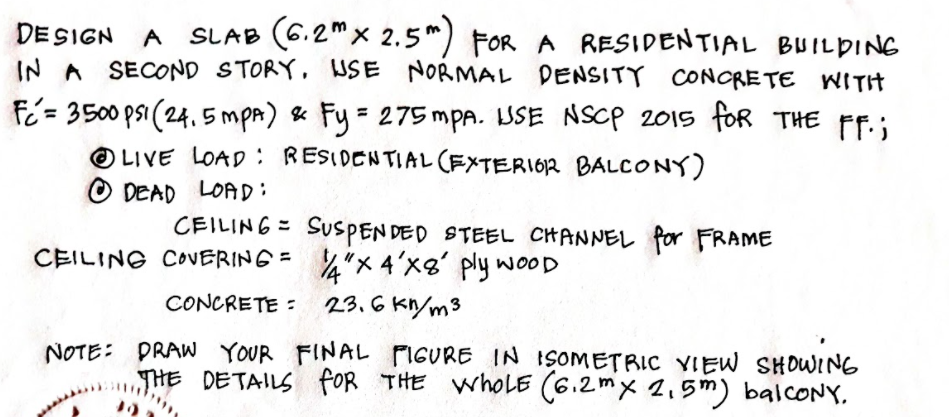 DESIGN A SLAB (6.2m x 2.5m) FOR A RESIDENTIAL BUILDING
IN A SECOND STORY. USE NORMAL DENSITY CONCRETE WITH
Fc' = 3500 PSI (24.5 MPA) & Fy = 275 MPA. USE NSCP 2015 FOR THE FF.;
@ LIVE LOAD: RESIDENTIAL (EXTERIOR BALCONY)
@ DEAD LOAD:
CEILING = SUSPENDED STEEL CHANNEL for FRAME
CEILING COVERING = 1/4" X 4'X8' ply WOOD
CONCRETE = 23.6 KN/m3
NOTE: DRAW YOUR FINAL FIGURE IN ISOMETRIC VIEW SHOWING
THE DETAILS FOR THE WHOLE (6.2m x 2.5m) balcony.